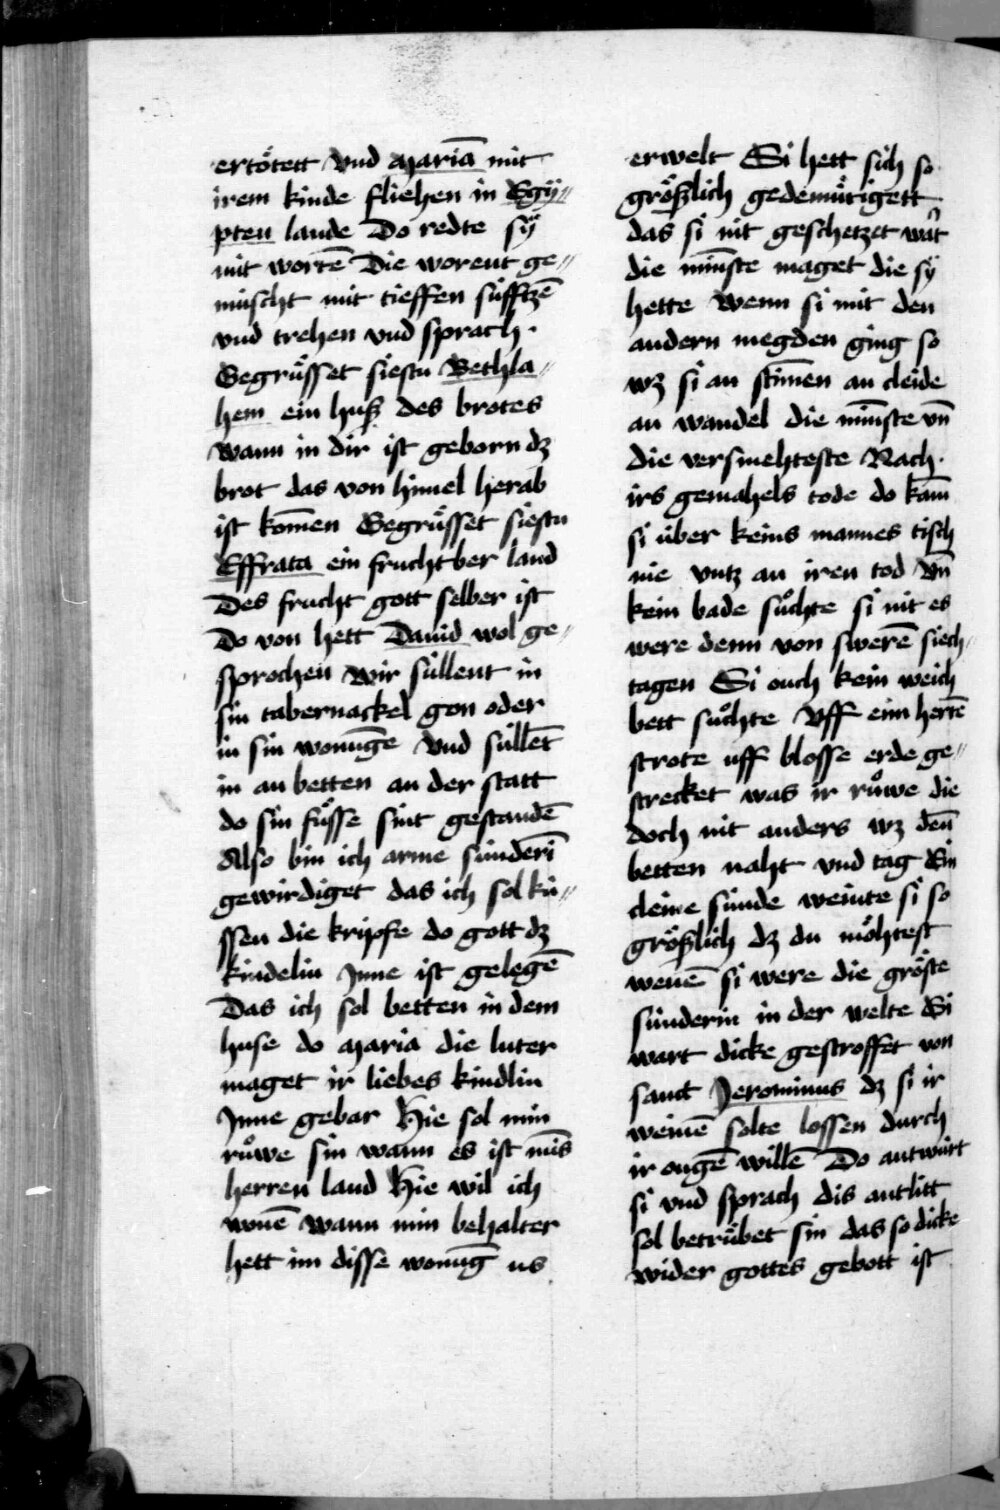 ertötett vnd mariā mit
irem kinde fliehen in Egÿ〃
pten lande Do redte sÿ
mit wortē Die worent ge〃
müscht mit tieffen süfftzē
vnd trehen vnd sprach.
Gegrüsset siestu Bethla〃
hem ein husz des brotes
wann in dir ist geborn dz
brot das von himel herab
ist komēn Gegrüsset siestu
Effrata ein frucht ber land
Des frucht gott selber ist
Do von hett Dauid wol ge〃
sprochen wir süllent in
sin tabernackel gon oder
in sin wonūge vnd süllēt
in an betten an der statt
do sin füsse sint gestandē
Also bin ich arme sünderī
gewirdiget das ich sol kü〃
ssen die kripfe do gott dz
kindelin Jnne ist gelegē
Das ich sol betten in dem
huse do maria die luter
maget ir liebes kindlin
Jnne gebar Hie sol min
růwe sin wann es ist mīs
herren land Hie wil ich
wonē wann min behalter
hett im disse wonūg us
erwelt Si hett sich so
gröszlich gedemütigett
das si nit geschetzet wart
die minste maget die sÿ
hette Wenn si mit den
andern megden ging so
wz si an stīmen an cleide
an wandel die mīnste vn̄
die versmehteste Nach.
irs gemahels tode do kam
si über keins mannes tisch
nie vntz an iren tod vn̄
kein bade sůchte si nit es
were denn von swerē siech〃
tagen Si ouch kein weich
bett sůchte Vff eim hertē
strote uff blosse erde ge〃
strecket was ir růwe die
doch nit anders wz den̄
betten naht vnd tag Ein
cleine sünde weinte si so
gröszlich dz du möhtest
wenē si were die gröste
sünderin in der welte Si
wart dicke gestroffet von
sanct Jeronimus dz si ir
weinē solte lossen durch
ir ougē willē Do antwürt
si vnd sprach dis antlitt
sol betrübet sin das so dicke
wider gottes gebott ist